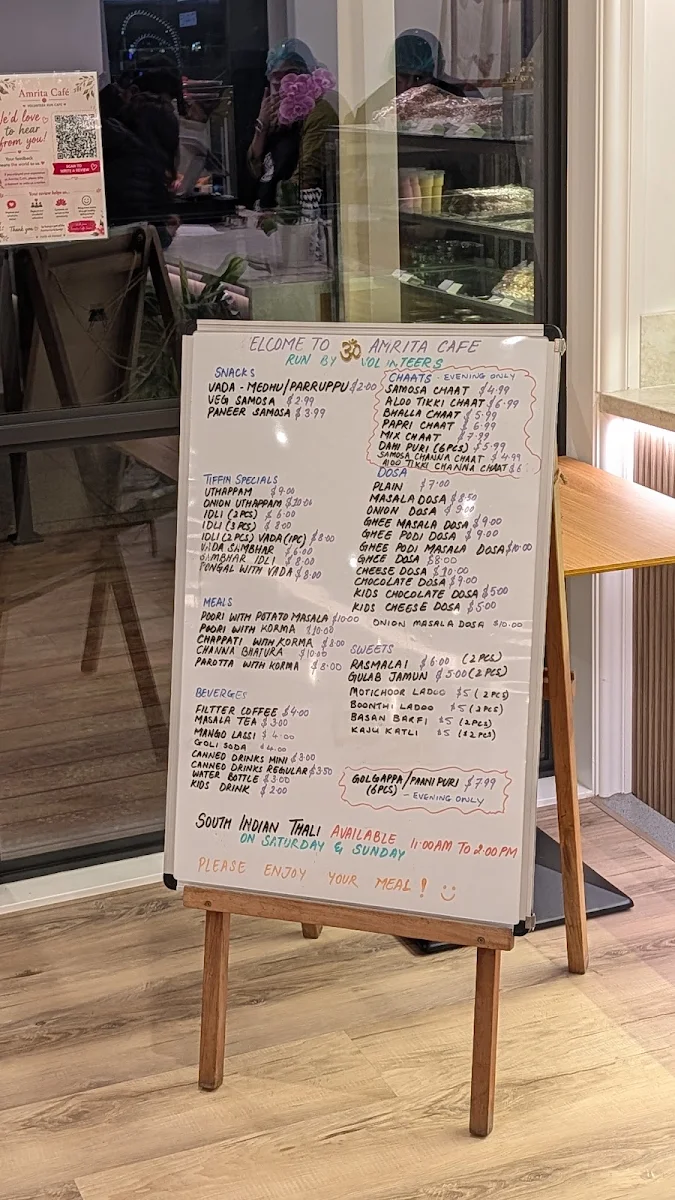 Amrita Café
VOLUNTEER RUN CAFE
e'd love
to hear
from you!
Your feedback
means the world to us
SCAN TO
WRITE A REVIEW
Your review helps us...
Thank you
ELCOME TO ॐ AMRITA CAFE
RUN BY VOL INTEERS
SNACKS
VADA - MEDHU/PARRUPPU $2.00
VEG SAMOSA $2.99
PANEER SAMOSA $3.99
CHAATS - EVENING ONLY
SAMOSA CHAAT $4.99
ALOO TIKKI CHAAT $6.99
BHALLA CHAAT $5.99
PAPRI CHAAT $6.99
MIX CHAAT $7.99
DAHI PURI (6PCS) $5.99
SAMOSA CHANNA CHAAT $4.99
ALOO TIKKI CHANNA CHAAT $6
TIFFIN SPECIALS
UTHAPPAM $9.00
ONION UTHAPPAM $10.00
IDLI (2PCS) $6.00
IDLI (3PCS) $8.00
IDLI (2PCS) VADA(1PC) $8.00
VADA SAMBHAR $6.00
SAMBHAR IDLI $8.00
PONGAL WITH VADA $8.00
DOSA
PLAIN $7.00
MASALA DOSA $8.50
ONION DOSA $9.00
GHEE MASALA DOSA $9.00
GHEE PODI DOSA $9.00
GHEE PODI MASALA DOSA $10.00
GHEE DOSA $8.00
CHEESE DOSA $10.00
CHOCOLATE DOSA $9.00
KIDS CHOCOLATE DOSA $5.00
KIDS CHEESE DOSA $5.00
ONION MASALA DOSA $10.00
MEALS
POORI WITH POTATO MASALA $10.00
POORI WITH KORMA $10.00
CHAPPATI WITH KORMA $8.00
CHANNA BHATURA $10.00
PAROTTA WITH KORMA $8.00
SWEETS
RASMALAI $6.00 (2PCS)
GULAB JAMUN $5.00 (2PCS)
MOTICHOOR LADOO $5 (2PCS)
BOONTHI LADOO $5 (2PCS)
BASAN BARFI $5 (2PCS)
KAJU KATLI $5 (2PCS)
BEVERGES
FILTTER COFFEE $4.00
MASALA TEA $3.00
MANGO LASSI $4.00
GOLI SODA $4.00
CANNED DRINKS MINI $3.00
CANNED DRINKS REGULAR $3.50
WATER BOTTLE $3.00
KIDS DRINK $2.00
GOLGAPPA/PAANI PURI $7.99
(6PCS) - EVENING ONLY
SOUTH INDIAN THALI AVAILABLE 11:00AM TO 2:00PM
ON SATURDAY & SUNDAY
PLEASE ENJOY YOUR MEAL!